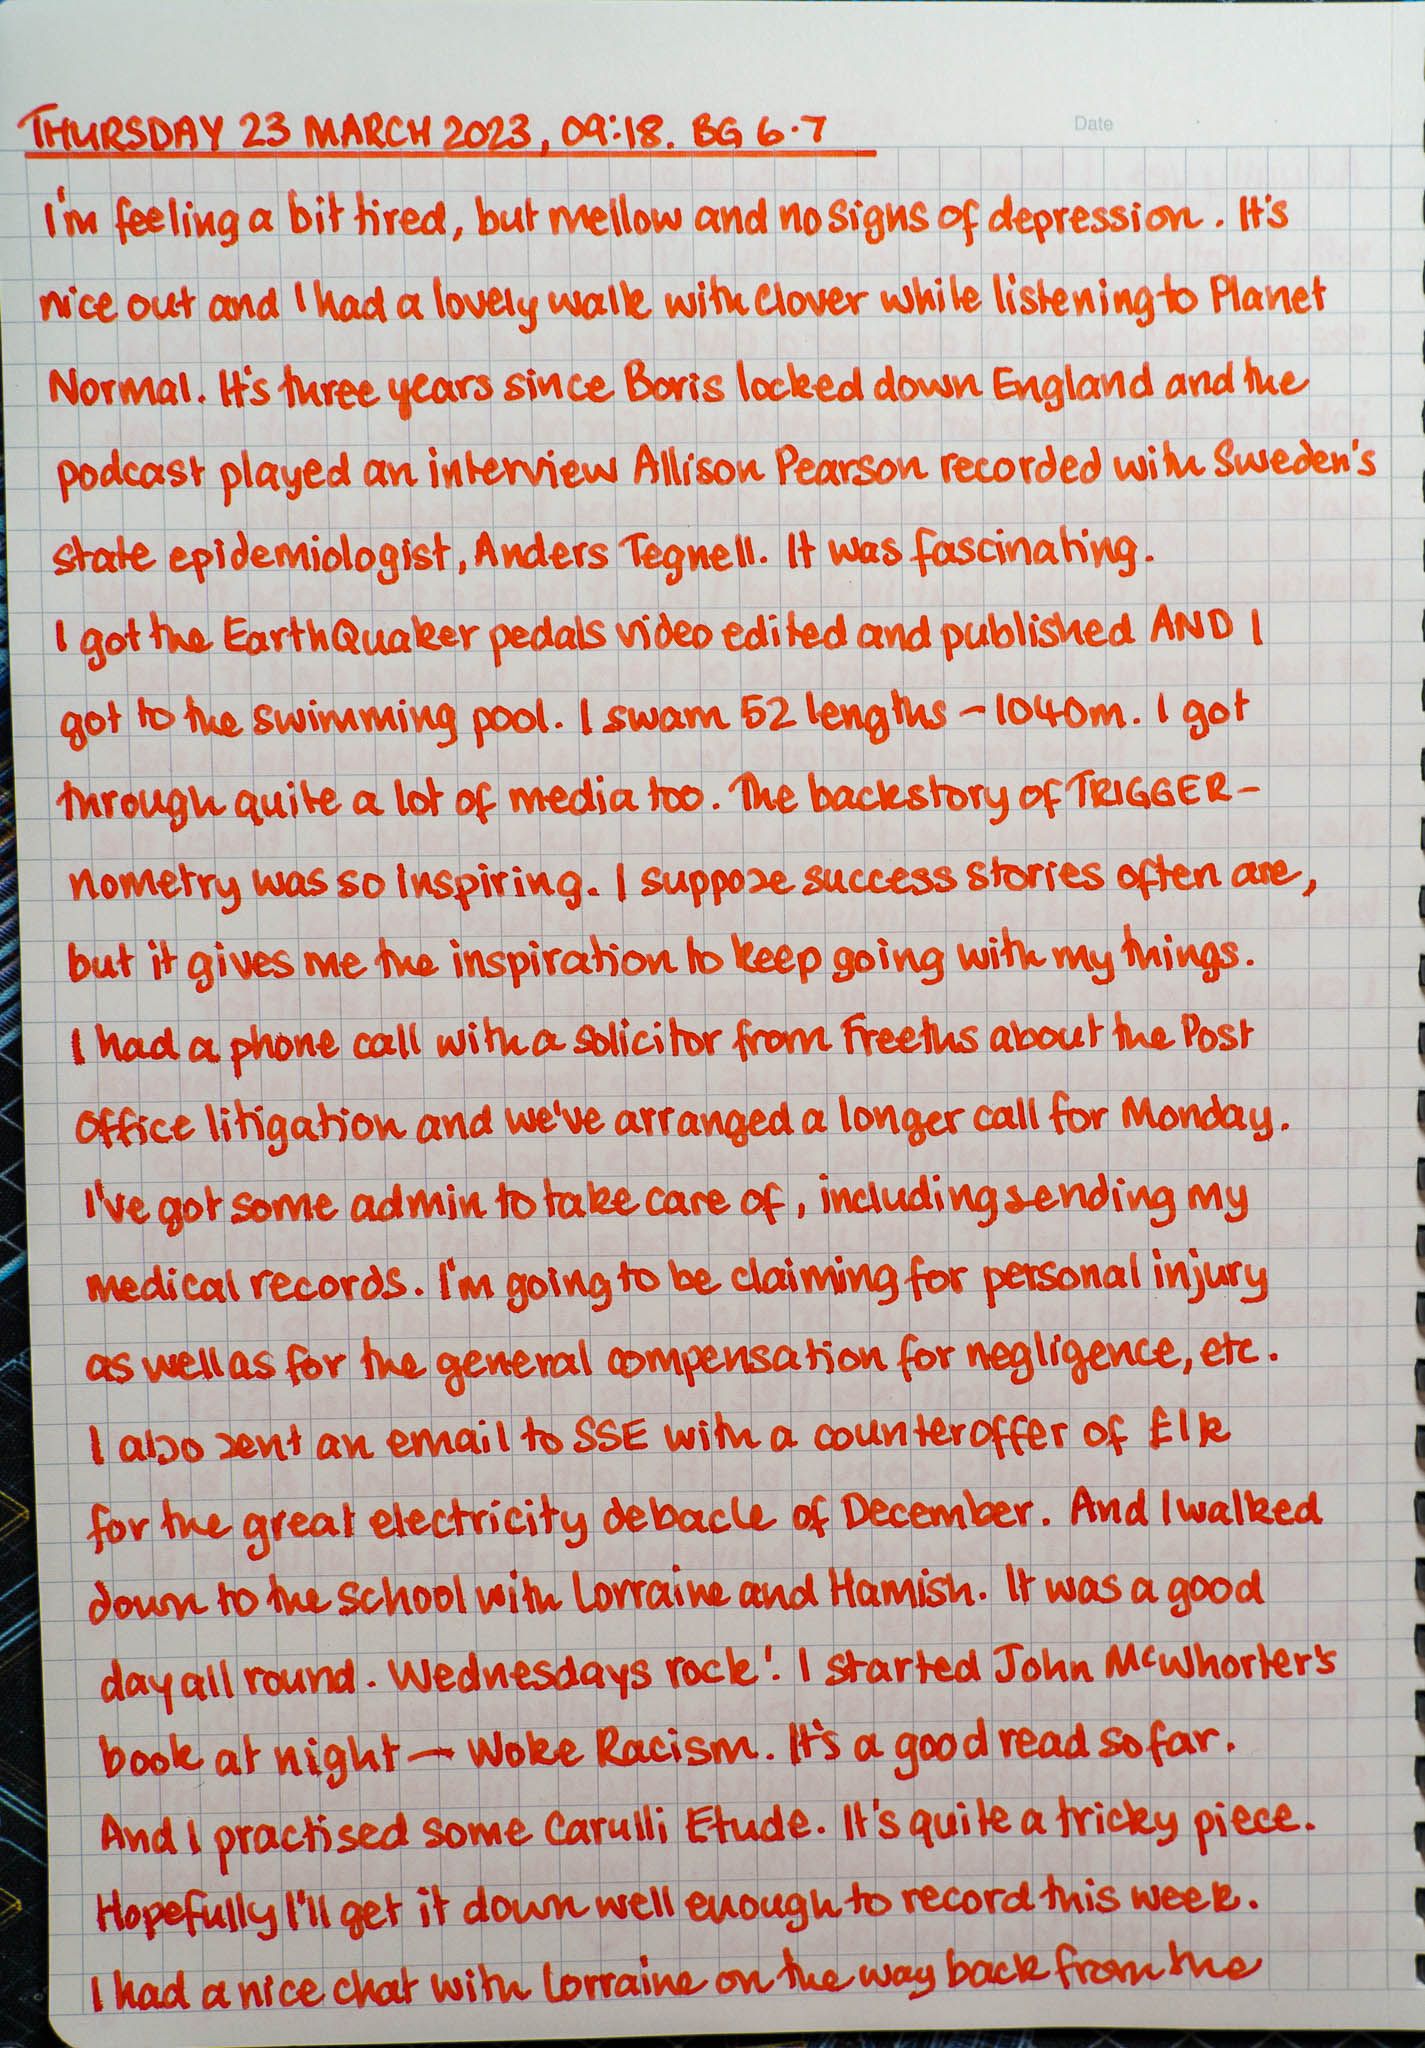 Date
THURSDAY 23 MARCH 2023, 09:18. BG 6.7
I'm feeling a bit tired, but mellow and no signs of depression. It's
nice out and I had a lovely walk with Clover while listening to Planet
Normal. It's three years since Boris locked down England and the
podcast played an interview Allison Pearson recorded with Sweden's
state epidemiologist, Anders Tegnell. It was fascinating.
I got the EarthQuaker pedals video edited and published AND I
got to the swimming pool. I swam 52 lengths - 1040m. I got
through quite a lot of media too. The backstory of TRIGGER-
nometry was so inspiring. I suppose success stories often are,
but it gives me the inspiration to keep going with my things.
I had a phone call with a solicitor from Freeths about the Post
Office litigation and we've arranged a longer call for Monday.
I've got some admin to take care of, including sending my
medical records. I'm going to be claiming for personal injury
as well as for the general compensation for negligence, etc.
I also sent an email to SSE with a counteroffer of £1k
for the great electricity debacle of December. And I walked
down to the school with Lorraine and Hamish. It was a good
day all round. Wednesdays rock! I started John McWhorter's
book at night — Woke Racism. It's a good read so far.
And I practised some Carulli Etude. It's quite a tricky piece.
Hopefully I'll get it down well enough to record this week.
I had a nice chat with Lorraine on the way back from the